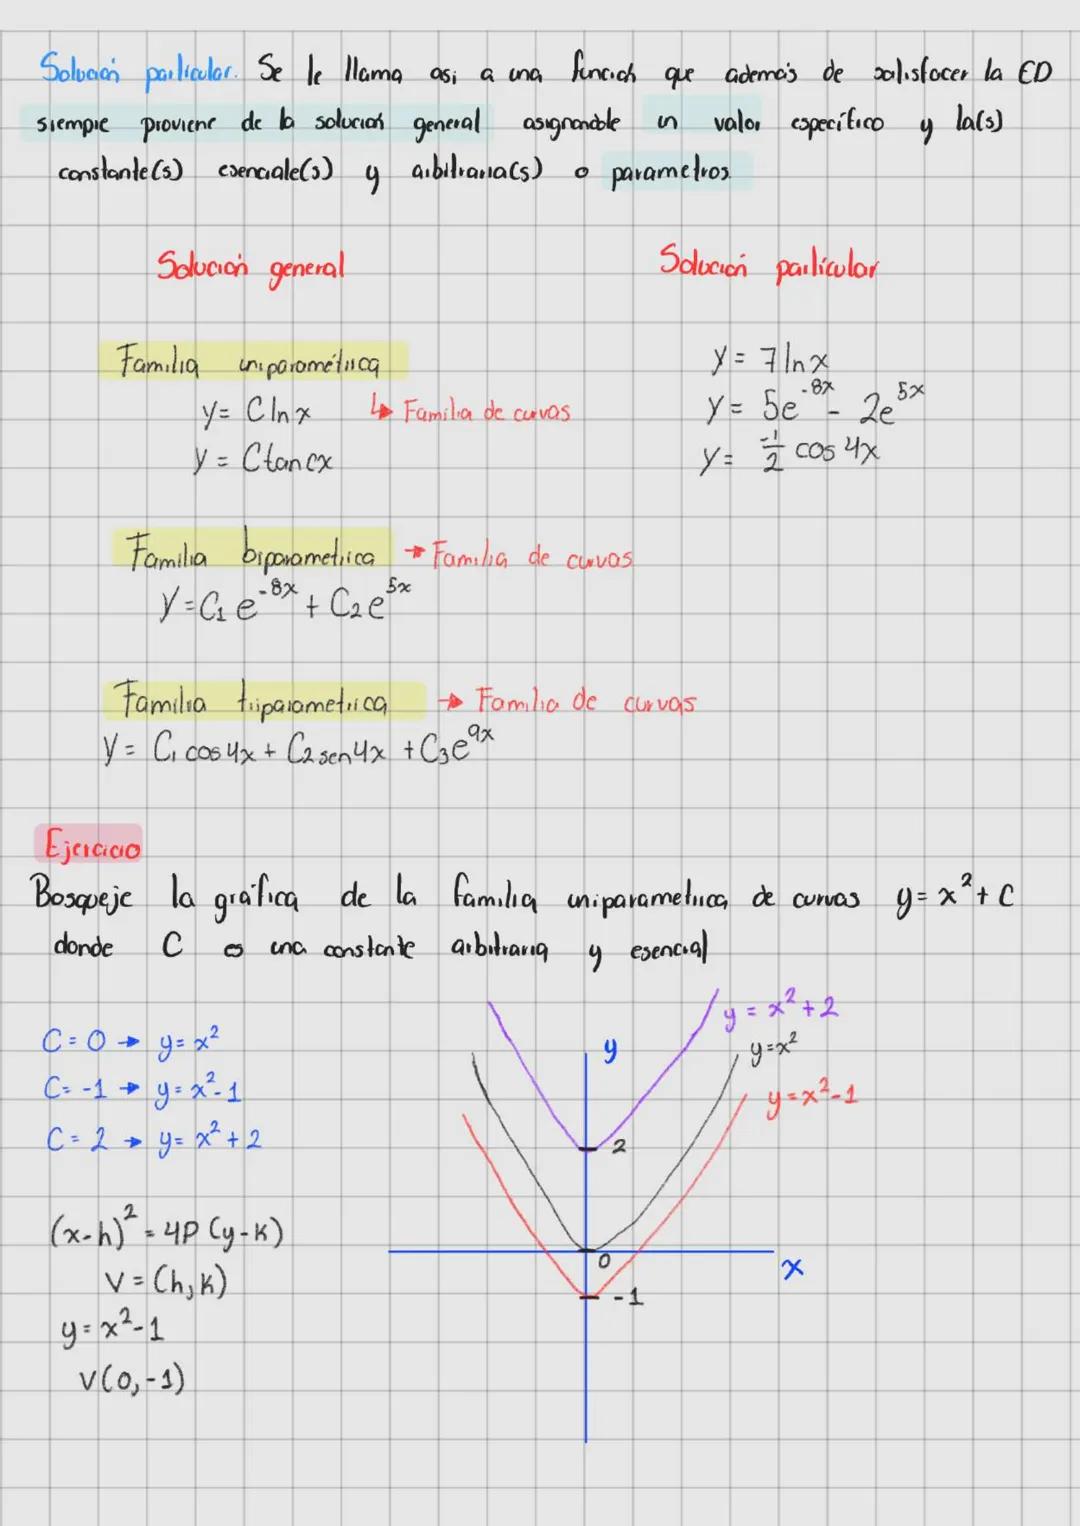 Solución particular. Se le llama asi a una función que además de satisfacer la ED
siempre proviene de la solución general asignandole un valor específico y la(s)
constante(s) esenciale(s) y arbitraria(s) o parametros.
Solución general
Solución particular
Familia uniparamétrica
y = C ln x
↳ Familia de curvas
y = C tan cx
y = 7 ln x
y = 5e^-8x - 2e^5x
y = -1/2 cos 4x
Familia biparametrica → Familia de curvas
y = C1 e^-8x + C2 e^5x
Familia triparametrica → Familia de curvas
y = C1 cos 4x + C2 sen 4x + C3 e^9x
Ejercicio
Bosqueje la gráfica de la familia uniparametrica de curvas y = x² + C
donde C es una constante arbitraria y esencial
C = 0 → y = x²
C = -1 → y = x² - 1
C = 2 → y = x² + 2
(x-h)² = 4P (y-k)
V = (h, k)
y = x² - 1
V(0, -1)
y = x² + 2
y
y = x²
y = x² - 1
2
0
x
-1